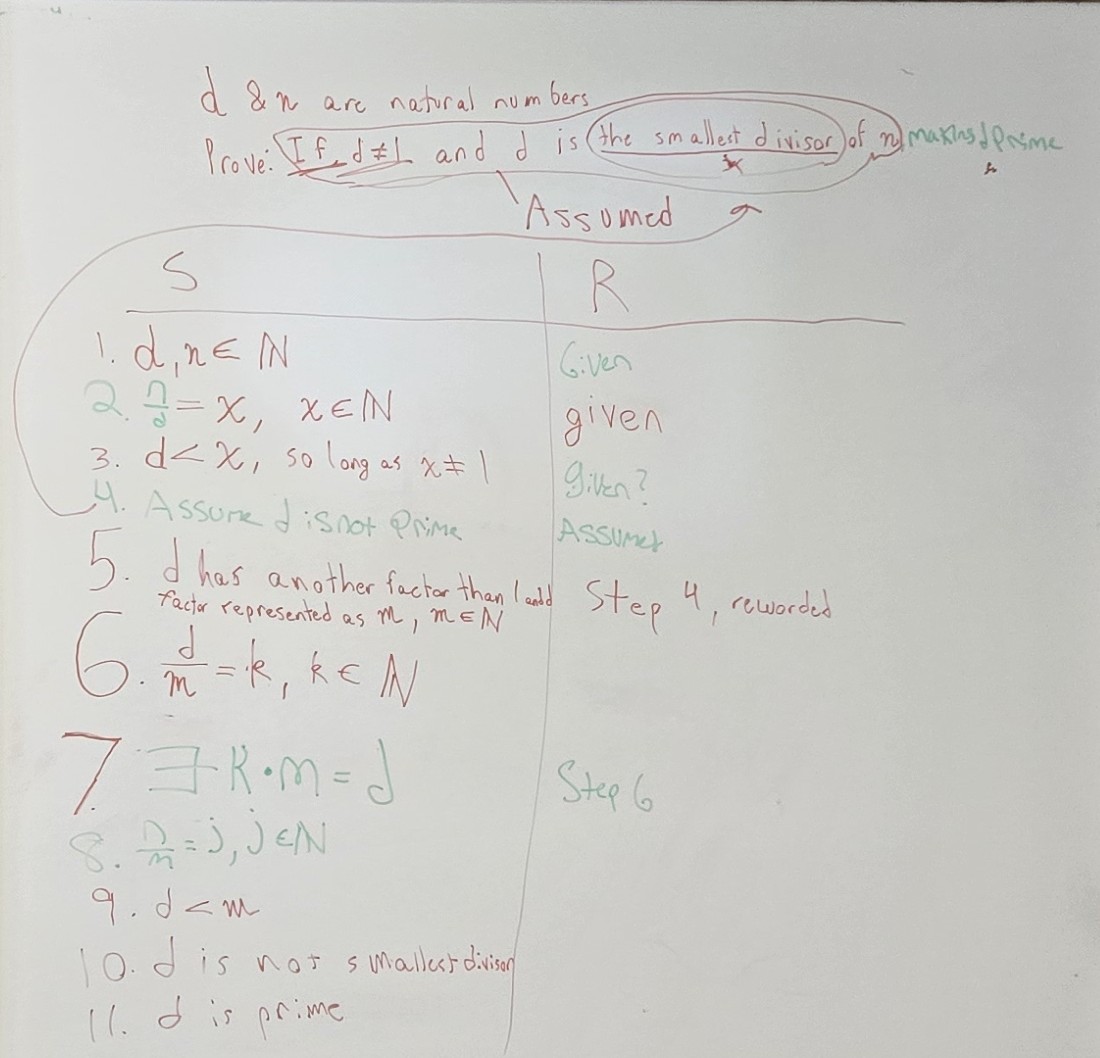 d & n are natural numbers
Prove: If d ≠ 1 and d is the smallest divisor of n, makes d Prime
Assumed
S R
1. d, n ∈ ℕ Given
2. n/d = x, x ∈ ℕ given
3. d < x, so long as x ≠ 1 Given?
4. Assume d is not Prime Assumed
5. d has another factor than 1 and d Step 4, reworded
factor represented as m, m ∈ ℕ
6. d/m = k, k ∈ ℕ
7 ∃ k·m = d Step 6
8. n/m = j, j ∈ ℕ
9. d < m
10. d is not smallest divisor
11. d is prime